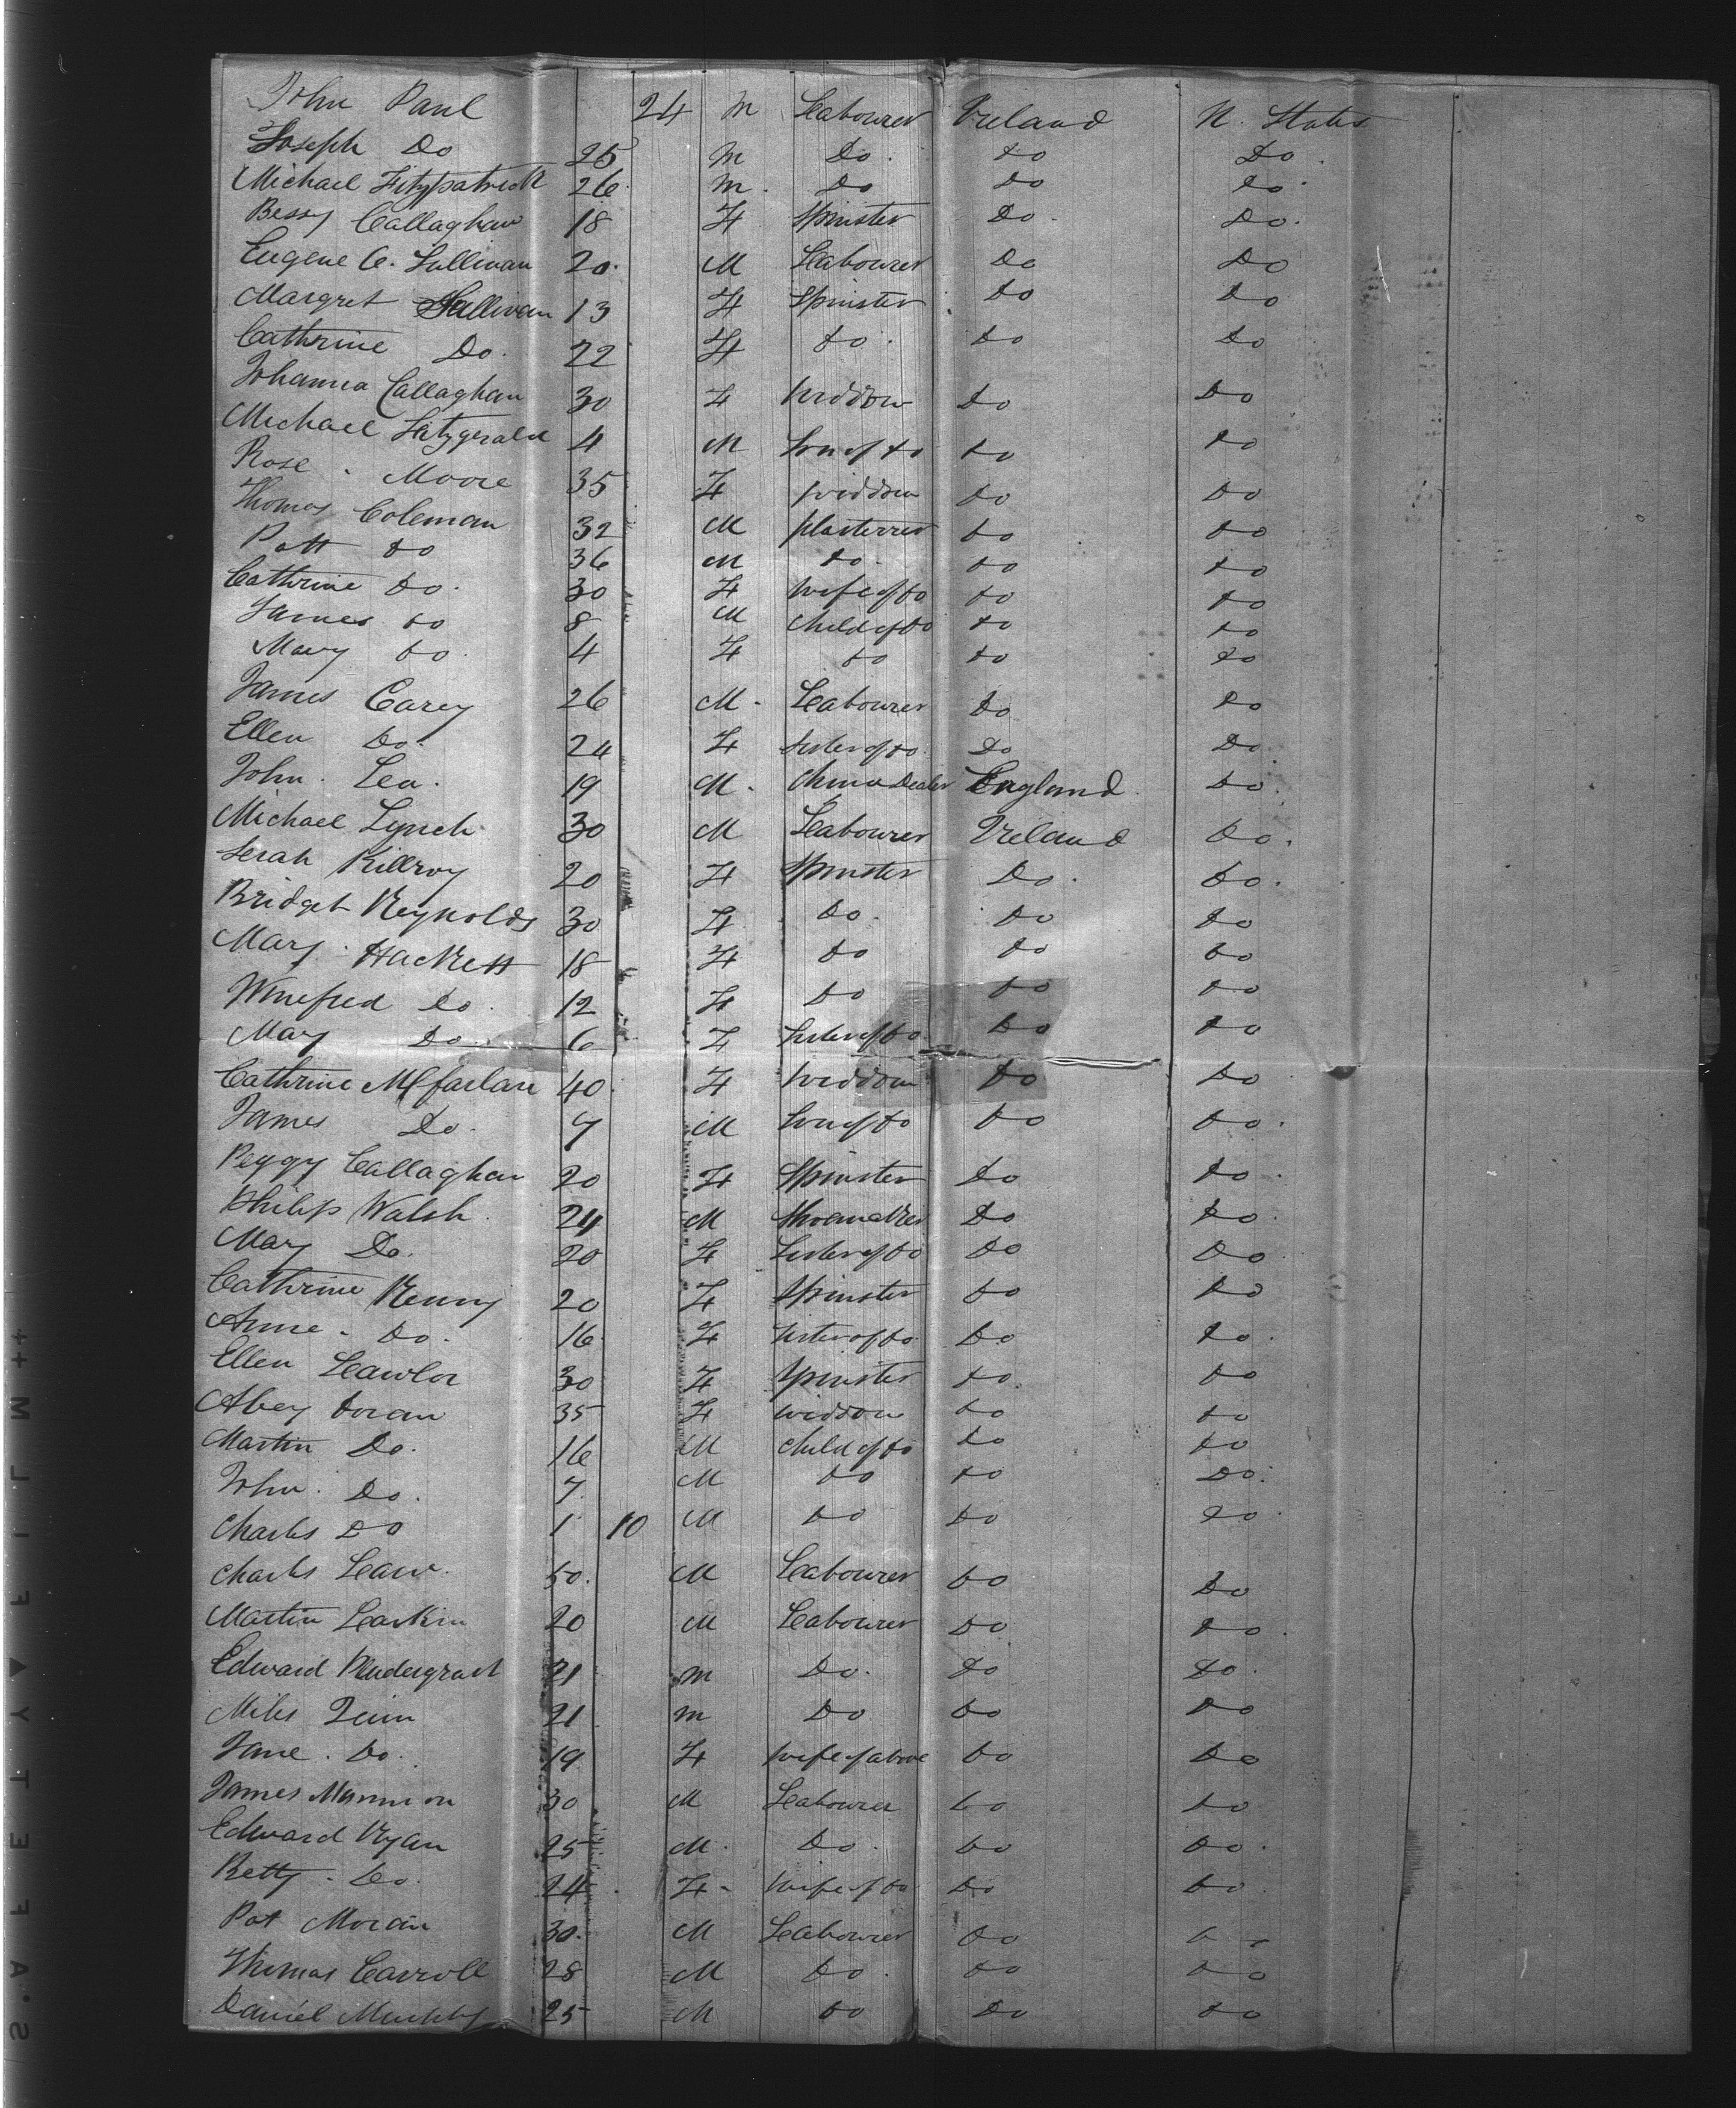 John Paul 24 M Labourer Ireland U. States
Joseph Do 25 M Do. Do Do.
Michael Fitzpatrick 26 M. Do Do Do.
Bessy Callaghan 18 F Spinster Do. Do.
Eugene C. Sullivan 20. M Labourer Do Do
Margret Sullivan 13 F Spinster Do Do
Cathrine Do. 22 F Do. Do Do
Johanna Callaghan 30 F widdow Do Do
Michael Fitzgerald 4 M Son of Do Do Do
Rose. Moore 35 F widdow Do Do
Thomas Coleman 32 M plasterrer Do Do
Patt Do 36 M Do. Do Do
Cathrine Do. 30 F wife of Do Do Do
James Do 8 M Child of Do Do Do
Mary Do. 4 F Do Do Do
James Carey 26 M. Labourer Do Do
Ellen Do. 24 F Sister of Do. Do Do
John. Lea. 19 M. China Dealer England. Do.
Michael Lynch 30 M Labourer Ireland Do.
Serah Killroy 20 F Spinster Do. Do.
Bridget Reynolds 30 F Do. Do Do
Mary. Hackett 18 F Do Do Do
Winefred Do. 12 F Do Do Do
Mary Do. 6 F Sister of Do. Do Do
Cathrine McFarlan 40. F widdow Do Do
James Do. 7 M Son of Do Do Do.
Peggy Callaghan 20 F Spinster Do Do.
Philip Walsh. 24 M Shoemaker Do Do.
Mary Do. 20 F Sister of Do Do Do
Cathrine Kenny 20 F Spinster Do Do
Anne. Do. 16 F Sister of Do Do Do.
Ellen Leawlor 30 F Spinster Do. Do
Abey Doran 35 F widdow Do Do
Martin Do. 16 M Child of Do Do Do
John. Do. 7 M Do Do Do.
Charles Do 1 10 M Do Do Do.
Charles 50. M Labourer Do Do
Martin Larkin 20 M Labourer Do Do.
Edward Pendergrast 21 M Do. Do Do.
Miles Quin 21 M Do Do Do
Jane. Do. 19 F wife of above Do Do
James Mannion 30 M Labourer Do Do
Edward Ryan 25 M. Do. Do Do.
Betty. Do. 24 F. wife of Do Do Do.
Pat Moran 30. M Labourer Do Do
Thomas Carroll 28 M Do. Do Do
Daniel Murphy 25 M Do Do Do